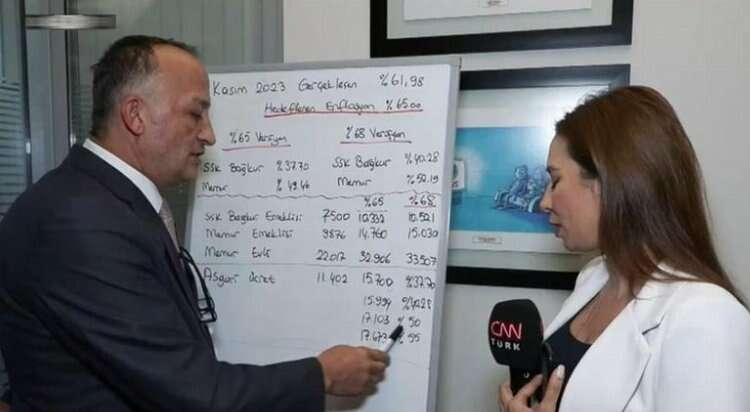 Kasım 2023 Gerçekleşen %61,98
Hedeflenen Enflasyon %65.00
%65 Versiyon %68 Versiyon
SSK Bağkur %37.70 SSK Bağkur %40.28
Memur % 49.46 Memur %52.19
%65 %68
SSK Bağkur Emeklisi 7500 10.332 10.521
Memur Emeklisi 9876 14.760 15.030
Memur Evli 22.017 32.906 33.507
Asgari Ücret 11.402 15.700 %37.70
15.994 %40.28
17.103 %50
17.673 % 55
CNN
TÜRK